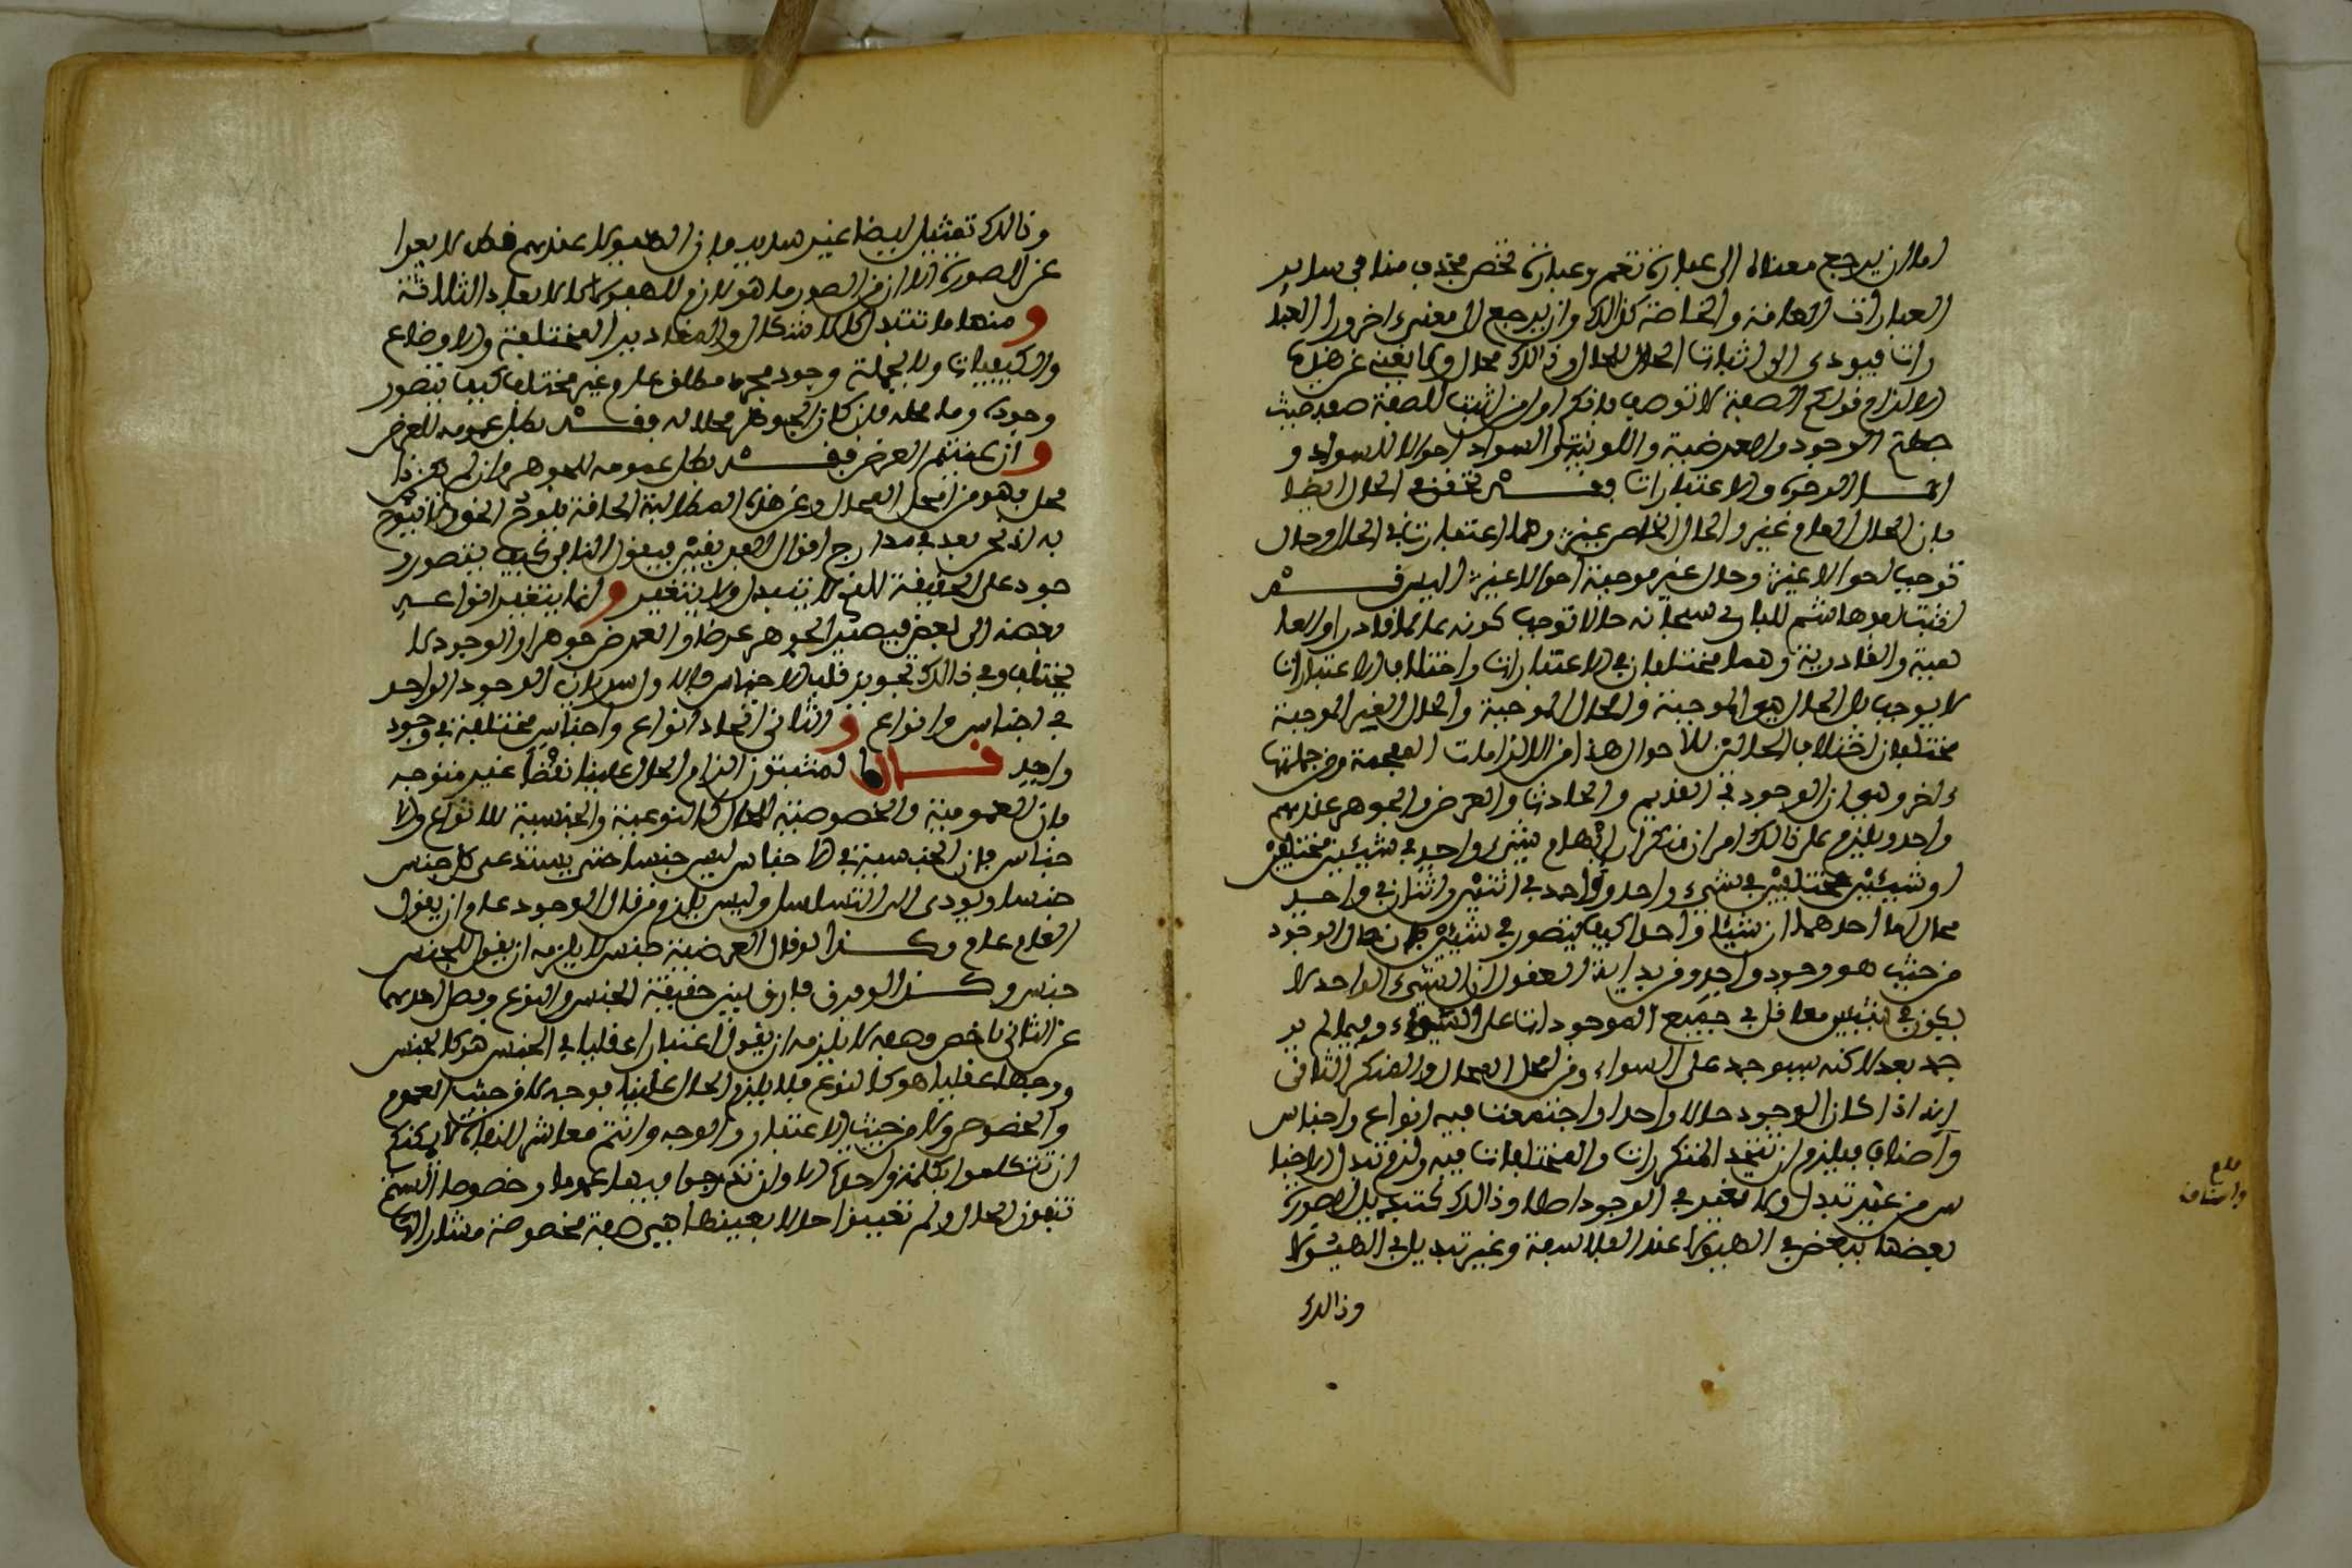 اما ان يرجع معناه الى عبارة تعم وعبارة تخص فخذوا منا في ساير
العبارات العامة والخاصة كذالك وان يرجع الى معنى ءاخر ورا العبا
رات فيودى الى اثبات الحال للحال وذالك محال ولا يغنى عن هذه
الالزام قولكم الصفة لا توصف فانكم اول من اثبت للصفة صفة حيث
جعلتم الوجود والعرضية واللونية والسواد احوالا للسواد و
الوجوه والاعتبارات فقد تتحقق في الحال ايضا
فان الحال العام غير والحال الخاص غير وهما اعتباران في الحال وحال
توجب احوالا غير وحال غير موجبة احوالا غير اليس قد
اثبت ابو هاشم للباري سبحانه حالا توجب كونه عالما قادرا والعا
لمية والقادرية وهما مختلفان في الاعتبارات واختلاف الاعتبارات
لا يوجب الحال هي الموجبة والحال الموجبة والحال الغير الموجبة
مختلفان اختلاف الحالتين للاحوال هذا من الالزامات المفحمة ومن جملتها
ءاخر وهي ان الوجود في القديم والحادث والعرض والجوهر عندهم
واحد ويلزم على ذالك امران منكران ابهام شيء واحد في شيئين مختلفين
او شيئين مختلفين في شيء واحد وواحد في اثنين واثنان في واحد
محال اما احدهما ان شيئا واحدا كيف يتصور في شيئين فان حال الوجود
من حيث هو وجود واحد ومن بداية العقول ان الشيء الواحد لا
يكون في شيئين معا قل في جميع الموجودات على السواء وفيما لم يو
جد بعد لاكنه سيوجد على السواء ومن امحل المحال والمنكر الثاني
انه اذا كان الوجود حالا واحدا واجتمعت فيه انواع واجناس
واصناف فيلزم ان تتحد المتكثرات والمختلفات فيه ولزم تبدل الاجنا
س من غير تبدل ولا تغير في الوجود اصلا وذالك كتبديل الصورة
بعضها ببعض في الهيولى عند الفلاسفة وغير تبديل في الهيولى
وذالك
وذالك تمثيل ايضا غير سديد فان الهيولى عندهم قط لا تعرا
عن الصورة الا ان من الصور ما هو لازم للهيولى كالابعاد الثلاثة
ومنها ما تتبدل كالاشكال والمقادير المختلفة والاوضاع
والكيفيات وبالجملة وجود مجرد مطلق عار وغير مختلف كيف يتصور
وجوده وما محله فان كان الجوهر محلا له فقد بطل عمومه للعرض
وان عنيتم العرض فقد بطل عمومه للجوهر وان لم يكن ذا
محل فهو من امحل المحال وعن هذه المطالبة الحاقة يلوح الحق وانا ابوح
به اذ نحن بعد في مدارج اقوال الفريقين فيقول النافي كيف يتصور و
جود على الحقيقة لا يتبدل ولا يتغير وانما يتغير انواعه
بعضه الى بعض فيصير الجوهر عرضا والعرض جوهرا والوجود لا
يختلف وفي ذالك تجويز قلب الاجناس والاول سريان الوجود الواحد
في اجناس وانواع والثاني اتحاد انواع واجناس مختلفة في وجود
واحد قال المثبتون الزام الحال علينا نقضا غير متوجه
فان العمومية والخصوصية للحال كالنوعية والجنسية للانواع والا
جناس فان الجنسية في الاجناس ليس جنسا حتى يستدعى كل جنس
جنسا ويودى الى التسلسل وليس يلزم من قال الوجود عام ان يقول
العام عام وكذا لو قال العرضية جنس لا يلزمه ان يقول للجنس
جنس وكذا لو فرق فارق بين حقيقة الجنس والنوع وفصل احدهما
عن الثاني باخص وصفه لا يلزمه ان يقول اعتبارا عقليا في الجنس هو كالجنس
ووجها عقليا هو كالنوع فلا يلزم الحال علينا بوجه لا من حيث العموم
والخصوص ولا من حيث الاعتبار والوجه وانتم معاشر النفاة لا يمكنكم
ان تتكلموا بكلمة واحدة الا وان تدرجوا فيها عموما وخصوصا الستم
تنفون الحال ولم تعينوا حالا بعينها هي صفة مخصوصة مشار اليها